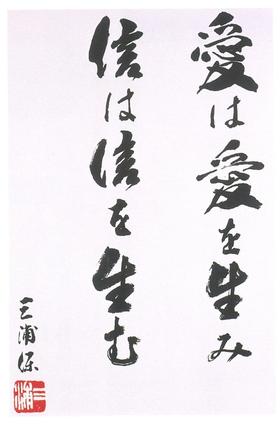 愛は愛を生み
信は信を生む
三浦保